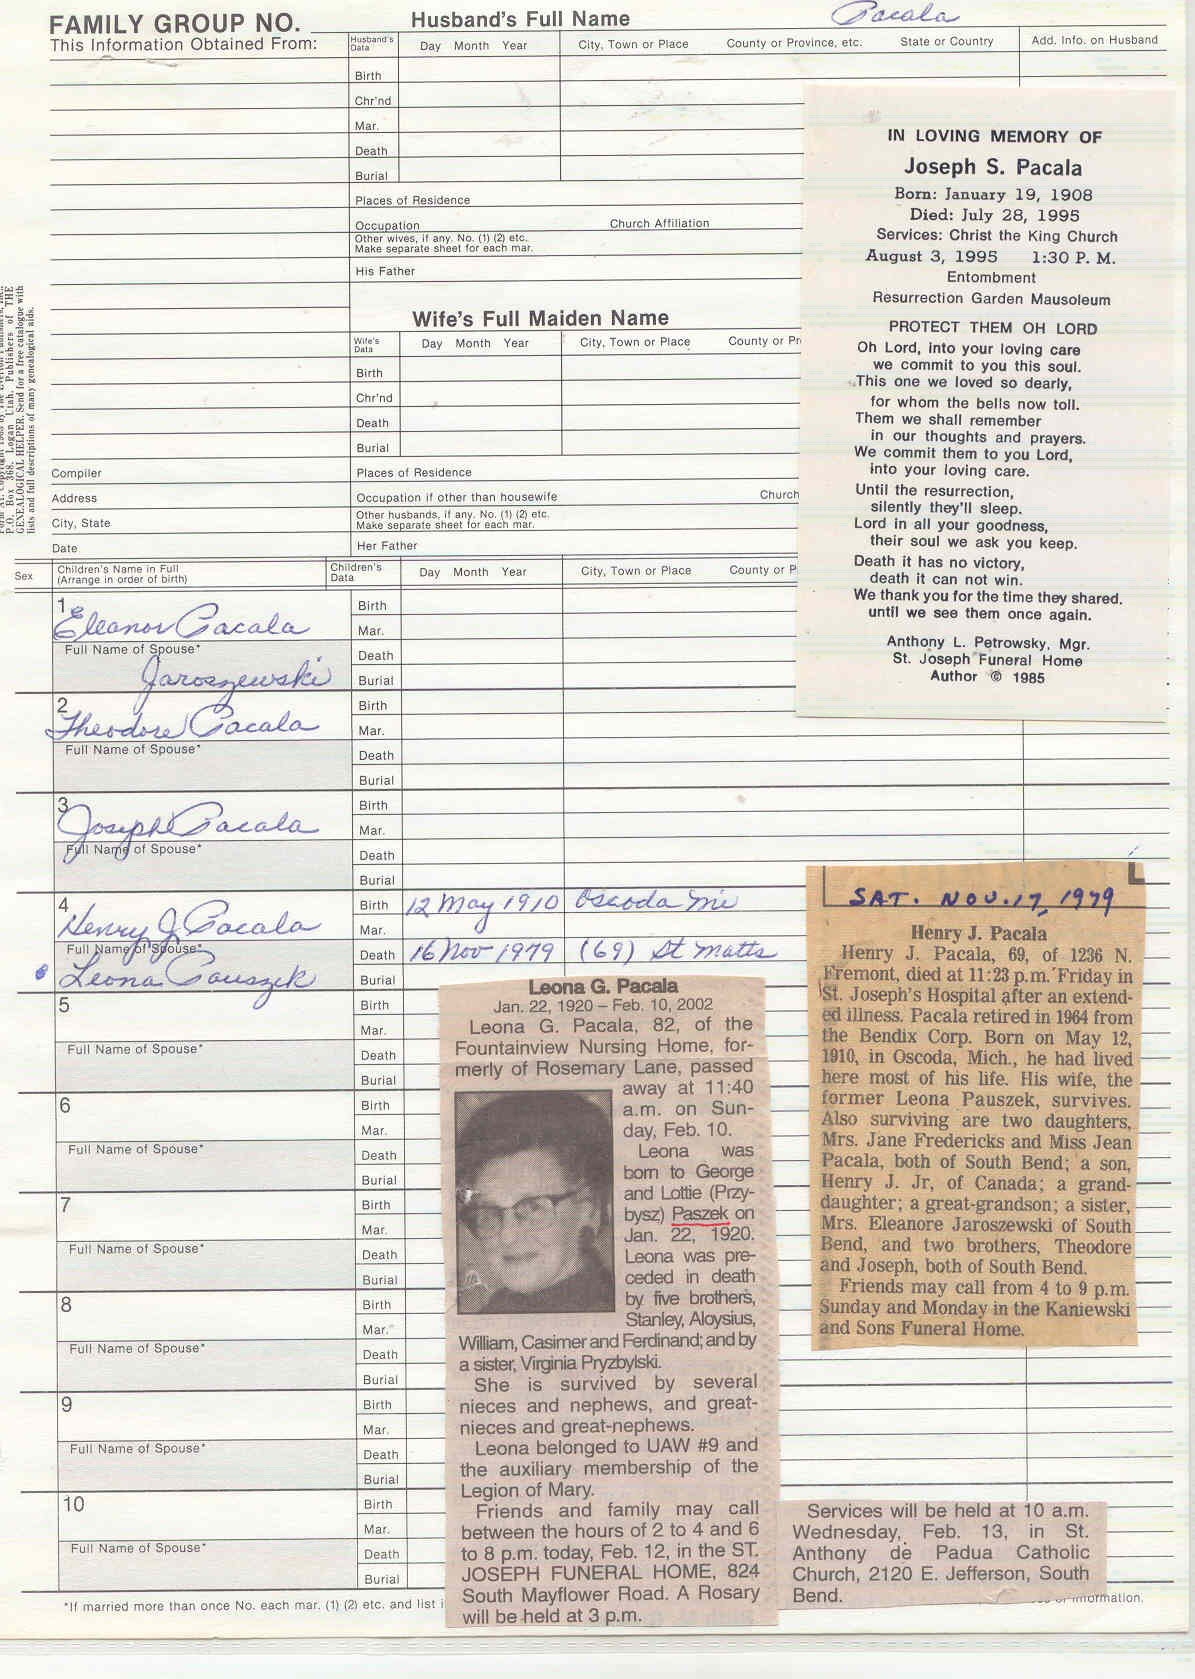 FAMILY GROUP NO.
This Information Obtained From:
Husband's Full Name
Pacala
Husband's Data
Day Month Year
City, Town or Place
County or Province, etc.
State or Country
Add. Info. on Husband
Birth
Chr'nd
Mar.
Death
Burial
Places of Residence
Occupation
Church Affiliation
Other wives, if any. No. (1) (2) etc.
Make separate sheet for each mar.
His Father
Wife's Full Maiden Name
Wife's Data
Day Month Year
City, Town or Place
County or Pr
Birth
Chr'nd
Death
Burial
Compiler
Places of Residence
Address
Occupation if other than housewife
Church
City, State
Other husbands, if any. No. (1) (2) etc.
Make separate sheet for each mar.
Date
Her Father
P.O. Box 368, Logan Utah. Publishers of THE
GENEALOGICAL HELPER. Send for a free catalogue with
lists and full descriptions of many genealogical aids.
IN LOVING MEMORY OF
Joseph S. Pacala
Born: January 19, 1908
Died: July 28, 1995
Services: Christ the King Church
August 3, 1995 1:30 P. M.
Entombment
Resurrection Garden Mausoleum
PROTECT THEM OH LORD
Oh Lord, into your loving care
we commit to you this soul.
This one we loved so dearly,
for whom the bells now toll.
Them we shall remember
in our thoughts and prayers.
We commit them to you Lord,
into your loving care.
Until the resurrection,
silently they'll sleep.
Lord in all your goodness,
their soul we ask you keep.
Death it has no victory,
death it can not win.
We thank you for the time they shared.
until we see them once again.
Anthony L. Petrowsky, Mgr.
St. Joseph Funeral Home
Author © 1985
Sex
Children's Name in Full
(Arrange in order of birth)
Children's Data
Day Month Year
City, Town or Place
County or P
1
Eleanor Pacala
Full Name of Spouse*
Jaroszewski
Birth
Mar.
Death
Burial
2
Theodore Pacala
Full Name of Spouse*
Birth
Mar.
Death
Burial
3
Joseph Pacala
Full Name of Spouse*
Birth
Mar.
Death
Burial
4
Henry J. Pacala
Full Name of Spouse*
Leona Pauszek
Birth 12 May 1910 Oscoda Mi
Mar.
Death 16 Nov 1979 (69) St Matts
Burial
5
Full Name of Spouse*
Birth
Mar.
Death
Burial
6
Full Name of Spouse*
Birth
Mar.
Death
Burial
7
Full Name of Spouse*
Birth
Mar.
Death
Burial
8
Full Name of Spouse*
Birth
Mar.
Death
Burial
9
Full Name of Spouse*
Birth
Mar.
Death
Burial
10
Full Name of Spouse*
Birth
Mar.
Death
Burial
*If married more than once No. each mar. (1) (2) etc. and list i
information.
Leona G. Pacala
Jan. 22, 1920 – Feb. 10, 2002
Leona G. Pacala, 82, of the
Fountainview Nursing Home, for-
merly of Rosemary Lane, passed
away at 11:40
a.m. on Sun-
day, Feb. 10.
Leona was
born to George
and Lottie (Przy-
bysz) Paszek on
Jan. 22, 1920.
Leona was pre-
ceded in death
by five brothers,
Stanley, Aloysius,
William, Casimer and Ferdinand; and by
a sister, Virginia Pryzbylski.
She is survived by several
nieces and nephews, and great-
nieces and great-nephews.
Leona belonged to UAW #9 and
the auxiliary membership of the
Legion of Mary.
Friends and family may call
between the hours of 2 to 4 and 6
to 8 p.m. today, Feb. 12, in the ST.
JOSEPH FUNERAL HOME, 824
South Mayflower Road. A Rosary
will be held at 3 p.m.
Services will be held at 10 a.m.
Wednesday, Feb. 13, in St.
Anthony de Padua Catholic
Church, 2120 E. Jefferson, South
Bend.
SAT. NOV. 17, 1979
Henry J. Pacala
Henry J. Pacala, 69, of 1236 N.
Fremont, died at 11:23 p.m. Friday in
St. Joseph's Hospital after an extend-
ed illness. Pacala retired in 1964 from
the Bendix Corp. Born on May 12,
1910, in Oscoda, Mich., he had lived
here most of his life. His wife, the
former Leona Pauszek, survives.
Also surviving are two daughters,
Mrs. Jane Fredericks and Miss Jean
Pacala, both of South Bend; a son,
Henry J. Jr, of Canada; a grand-
daughter; a great-grandson; a sister,
Mrs. Eleanore Jaroszewski of South
Bend, and two brothers, Theodore
and Joseph, both of South Bend.
Friends may call from 4 to 9 p.m.
Sunday and Monday in the Kaniewski
and Sons Funeral Home.